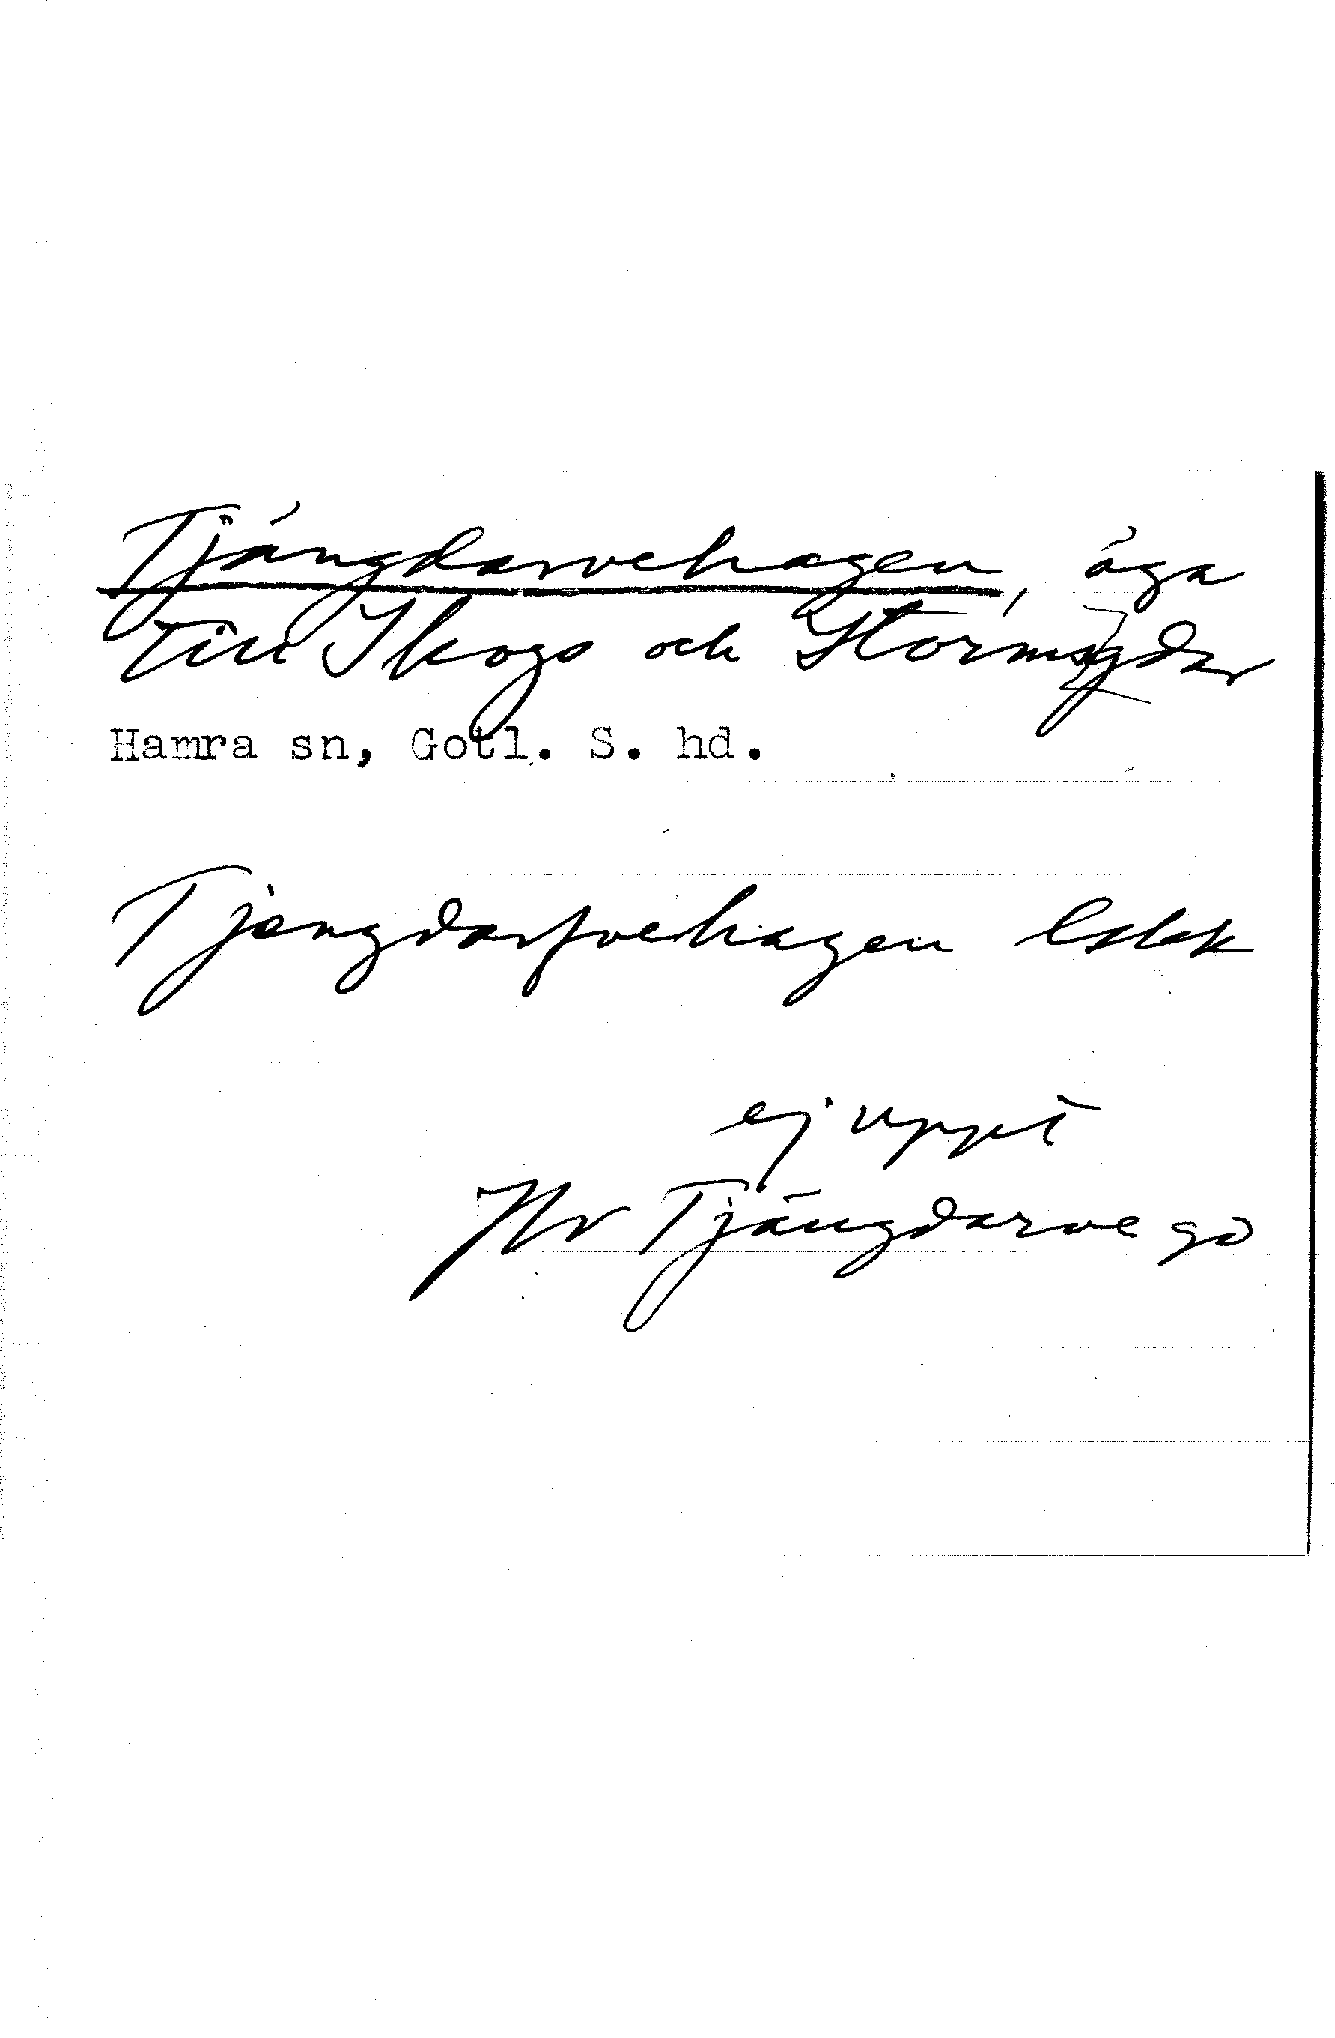 Tjängdarvehagen, äga
till Skogs och Stormyndar
Hamra sn, Gotl. S. hd.
Tjengdarfvehagen
ej uppt
Hv Tjängdarve gd